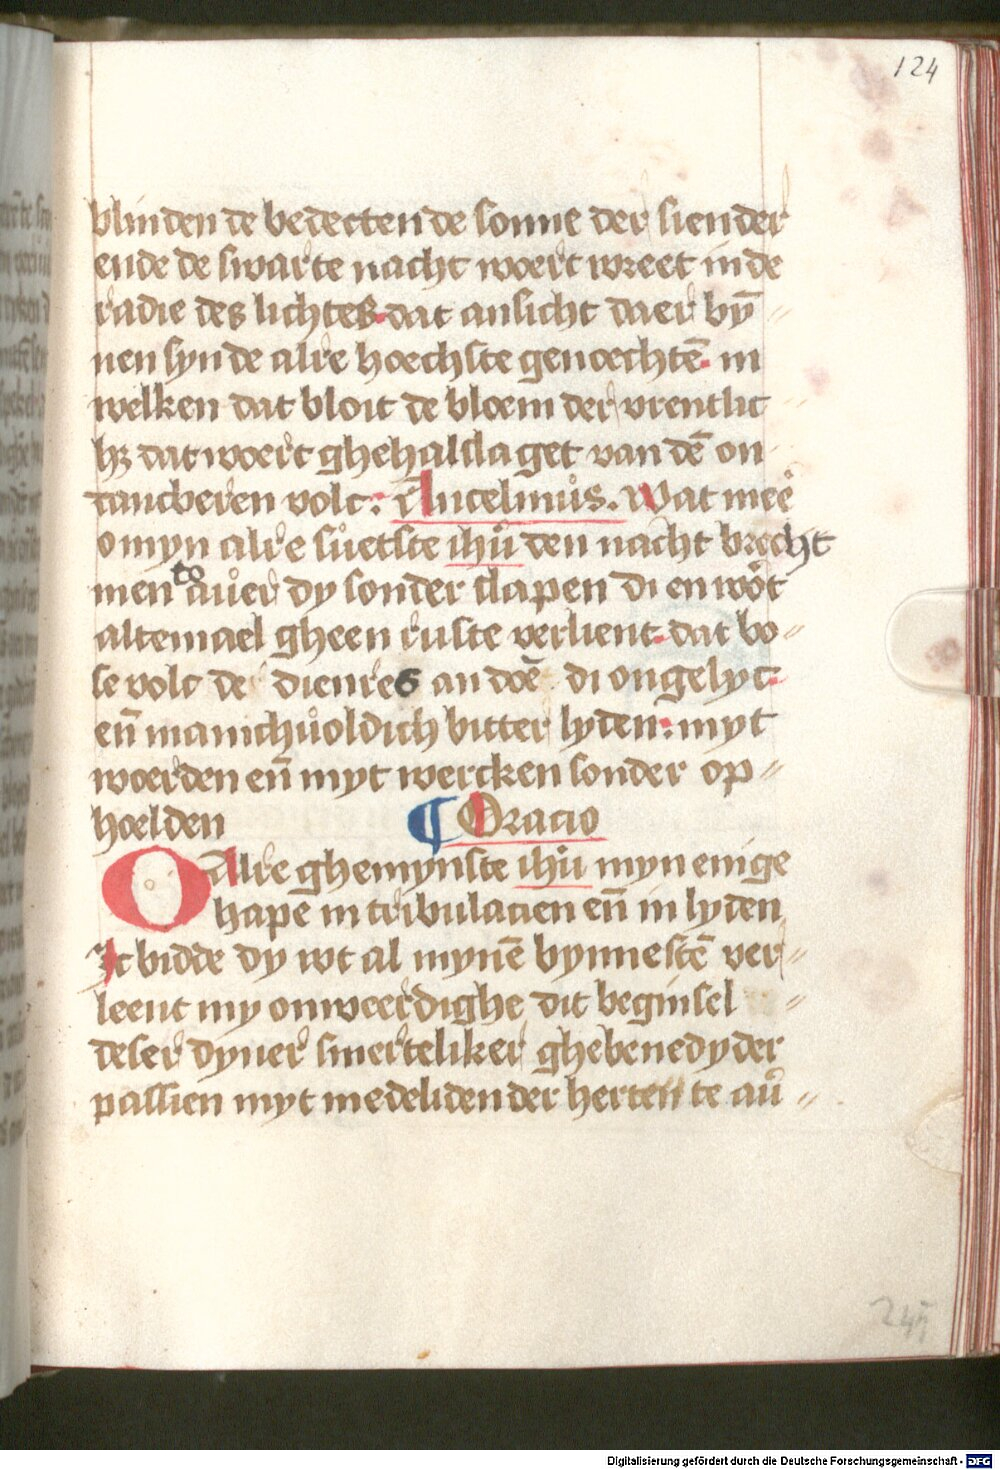 124
blinden de bedecten de sonne der siender
ende de swarte nacht woert wreet in de
radie des lichtes. dat ansicht daer bȳ
nen syn de alre hoechste genoechtē. in
welken dat bloit de bloem der vrentlic
hꝫ dat woert ghehalslaget van dē on
tancberen volc: Ancelmůs. Wat mee
o myn alre sůetste ihū den nacht brecht
men to aůer dy sonder slapen di en wort
altemael gheen ruste verlient. dat bo
se volc de dienres an doē di ongelyc
en̄ manichůoldich bitter lyden: myt
woerden en̄ myt wercken sonder op
hoelden ¶ Oracio
O Alre ghemynste ihū myn enige
hape in tribulacien en̄ in lyden
Ic bidde dy wt al mynē bynnestē ver
leent my onweerdighe dit beginsel
deser dyner smerteliker ghebenedyder
passien myt medeliden der herten te aů
245
Digitalisierung gefördert durch die Deutsche Forschungsgemeinschaft - DFG